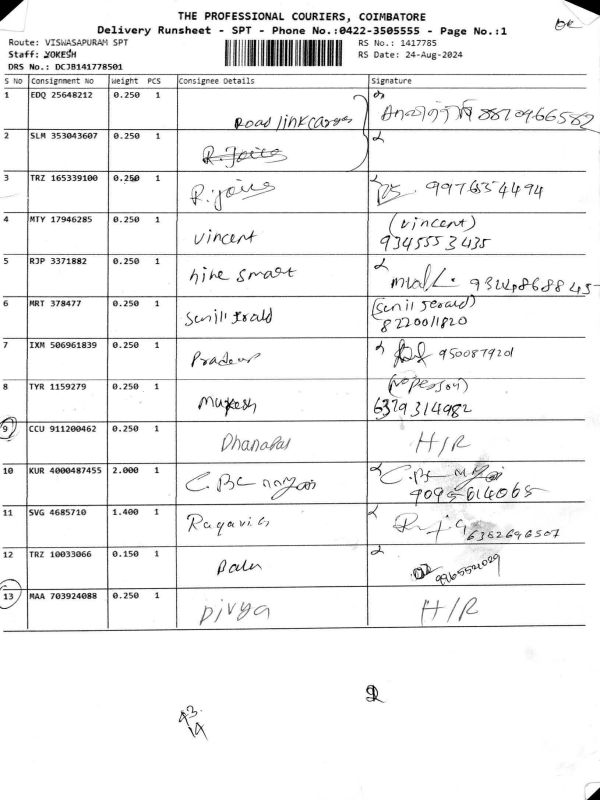 THE PROFESSIONAL COURIERS, COIMBATORE
Delivery Runsheet - SPT - Phone No.:0422-3505555 - Page No.:1
Route: VISWASAPURAM SPT
RS No.: 1417785
Staff: YOKESH
RS Date: 24-Aug-2024
DRS No.: DCJB141778501
S No Consignment No Weight PCS Consignee Details Signature
1 EDQ 25648212 0.250 1 Road link cargos
2 SLM 353043607 0.250 1 R. Joice
3 TRZ 165339100 0.250 1 R. joice 9976354494
4 MTY 17946285 0.250 1 vincent (vincent)
9345553435
5 RJP 3371882 0.250 1 nine smart
6 MRT 378477 0.250 1 (sunil Jerald)
8220011820
7 IXM 506961839 0.250 1 9500879201
8 TYR 1159279 0.250 1 Mukesh
6379314982
9 CCU 911200462 0.250 1 Dhanapal H/R
10 KUR 4000487455 2.000 1
9095614065
11 SVG 4685710 1.400 1 6382696507
12 TRZ 10033066 0.150 1
13 MAA 703924088 0.250 1 Divya H/R